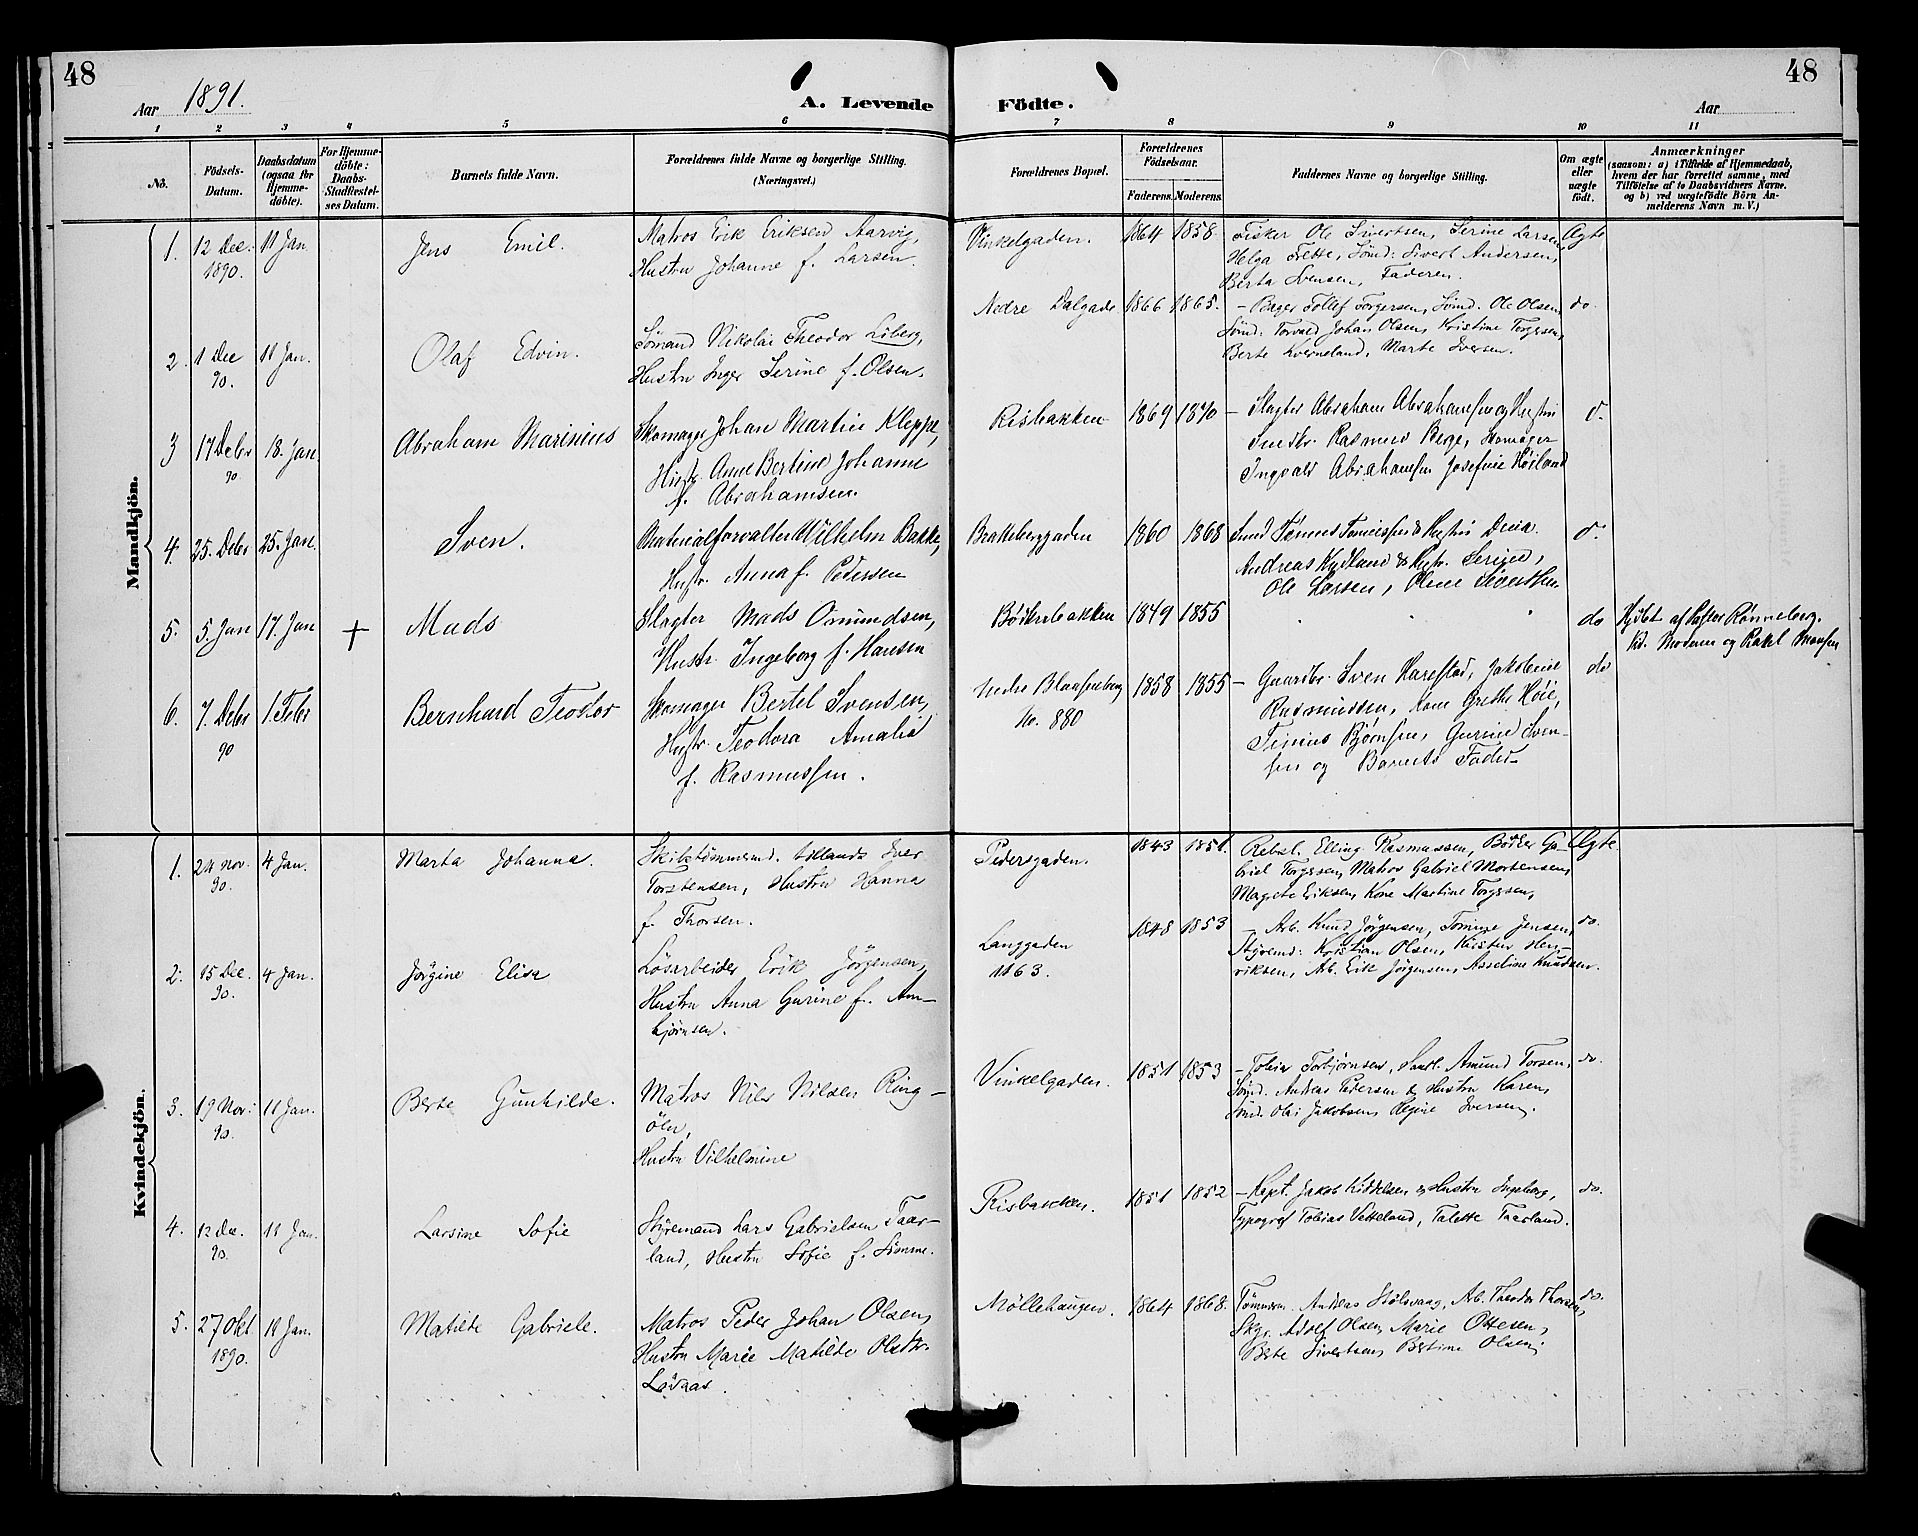 48
Aar 1891.
A. Levende Födte.
Aar
48
1 2 3 4 5 6 7 8 9 10 11
No.
Födsels-Datum.
Daabsdatum (ogsaa for Hjemme-döbte).
For Hjemme-döbte: Daabs-Stadfæstel-ses Datum.
Barnets fulde Navn.
Forældrenes fulde Navne og borgerlige Stilling. (Næringsvei.)
Forældrenes Bopæl.
Forældrenes Födselsaar.
Faderens. Moderens.
Faddernes Navne og borgerlige Stilling.
Om ægte eller uægte födt.
Anmærkninger
(saasom: a) i Tilfælde af Hjemmedaab, hvem der har forrettet samme, med Tilföielse af to Daabsvidners Navne. og b) ved uægtefödte Börn An-melderens Navn m. V.)
Mandkjön.
1. 12 Dec. 1890. 11 Jan. Jens Emil.
Matros Erik Eriksen Aarvig,
Hustru Johanne f. Larsen
Vinkelgaden. 1864 1858.
Fisker Ole Sivertsen, Serine Larsen,
Helga Tette, Sömd: Sivert Andersen,
Berta Svensen, Faderen.
Ægte
2. 1 Dec 90. 11 Jan. Olaf Edvin.
Sömand Nikolai Theodor Liberg,
Hustru Inger Serine f. Olsen.
Nedre Dalgade 1866 1865.
- Bager Tollef Torgersen, Sömd. Ole Olsen,
Sömd: Torvald Johan Olsen, Kristine Torgersen,
Berte Kverneland, Marte Iversen.
do.
3 17 Debr 90 18. Jan. Abraham Marinius
Skomager Johan Martin Kleppe,
Hustr. Anne Bertine Johanne
f. Abrahamsen.
Risbakken 1869 1870
- Slagter Abraham Abrahamsen og Hustru
Rasmus Berge, Skomager
Ingvald Abrahamsen Josefine Höiland
d.
4. 25. Debr 25. Jan. Sven.
Materialforvalter Wilhelm Bakke,
Hustr. Anna f. Pedersen
Brattebergaden 1860 1868
Andreas Kydland & Hustr. Serine,
Ole Larsen, Oline Sivertsen
d.
5. 5. Jan 17. Jan + Mads
Slagter Mads Omundsen,
Hustr. Ingeborg f. Hansen
Bödkerbakken 1849 1855
do
Hjdbt af Pastor Rönneberg.
Vid. Moderen og Rakel Monsen
6. 7. Debr 90 1. Febr Bernhard Teodor
Skomager Bertel Svensen,
Hustr. Teodora Amalie
f. Rasmussen.
Nedre Blaasenberg
No. 880
1858 1855
- Gaardbr. Sven Harestad, Jakobine
Rasmussen, Kone Grethe Höie,
Tinius Björnsen, Gurine Sven-
sen og Barnets Fader
do
Kvindekjön.
1. 24 Nov. 90. 4 Jan. Marta Johanna.
Skibstömmermd. Aollands Iver
Torstensen, Hustru Hanna
f. Thorsen.
Pedersgaden. 1843 1851.
Rebsl. Elling Rasmussen, Bödker Ga-
briel Torgersen, Matros Gabriel Mortensen,
Margrete Eriksen, Kone Martine Torgersen,
Ægte
2. 15 Dec. 90. 4 Jan. Jörgine Elisa
Lösarbeider Erik Jörgensen,
Hustru Anna Gurine f. Am-
björnsen.
Langgaden
1163.
1848 1853
- Arb. Knud Jörgensen, Tomine Jensen,
Styrmd: Kristian Olsen, Kirsten Hen-
riksen, Arb. Erik Jörgensen, Asseline Knudsen.
do.
3. 19 Nov. 90. 11 Jan. Berte Gunhilde.
Matros Nils Nilsen Ring-
öln,
Hustru Vilhelmine
Vinkelgaden. 1851 1853
- Tobias Torbjörnsen, Amund Torsen,
Sömd. Andreas Pedersen & Hustru Karen,
Sömd. Olai Jakobsen, Regine Iversen.
do.
4. 12 Dec. 90. 11 Jan. Larsine Sofie
Styrmand Lars Gabrielsen Taar-
land, Hustru Sofie f. Sömme.
Risbakken. 1851 1852
- Kapt. Jakob Kiddelsen & Hustru Ingeborg,
Typograf Tobias Vetteland, Talette Taarland.
do.
5. 27 Okt. 1890. 18 Jan. Matilde Gabriele.
Matros Peder Johan Olsen,
Hustru Marie Matilde Olsdtr.
Lövaas.
Möllehaugen. 1864 1868.
Tömmerm. Andreas Stölsvaag, Arb. Theodor Thorsen,
Skgr. Adolf Olsen, Marie Ottesen,
Berte Sivertsen, Bertine Olsen.
do.